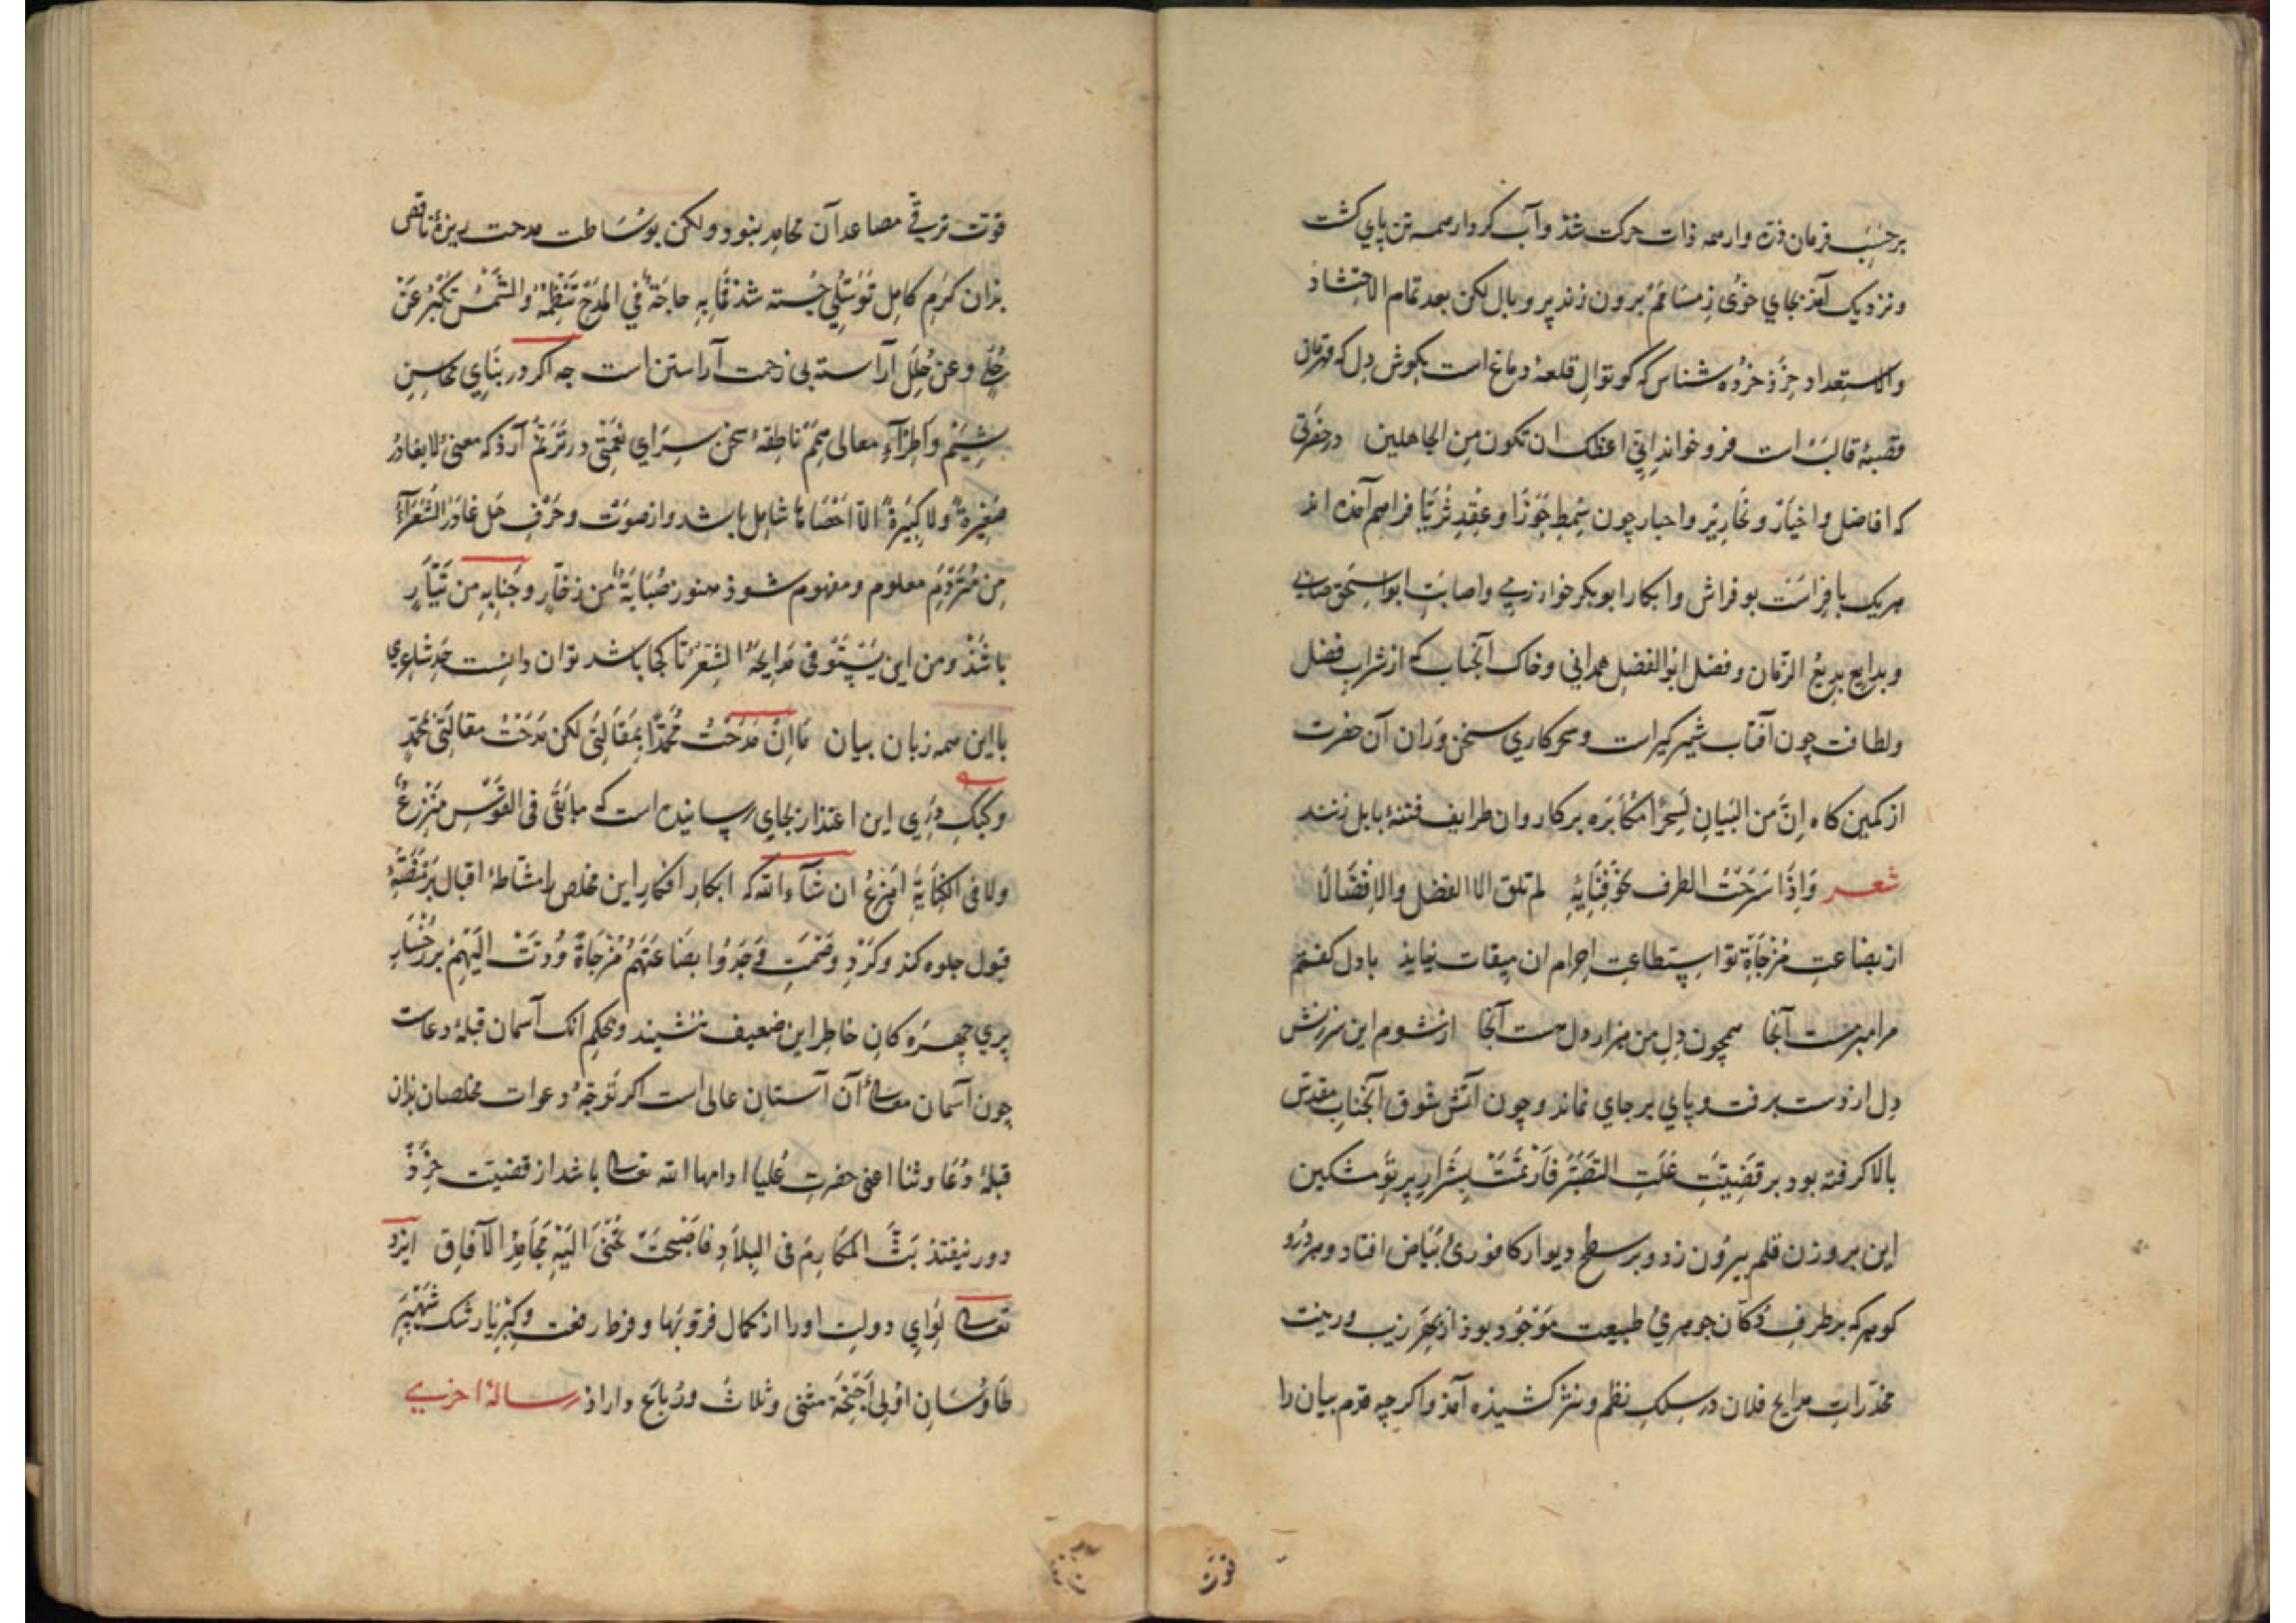 برحسب فرمان ذره وار همه ذات حرکت شد و آب کردار همه تن پای کشت
ونزدیک آمذ بجای خوی ز مسامم برون زند پر و بال لکن بعد تمام الاحتشاد
والاستعداد خرد خرده شناس که کوتوال قلعهٔ دماغ است بکوش دل که قهرمان
قصبهٔ قالب است فرو خواند انی اعظک ان تکون من الجاهلین در حضرتی
که افاضل واخیار و نحاریر و احبار چون سمط جوزا و عقد ثریا فراهم آمذه اند
هریک با فراست بو فراس وابکار ابوبکر خوارزمی واصابت ابواسحق صابی
وبدایع بدیع الزمان وفضل ابوالفضل همدانی وخاک آنجناب که از شراب فضل
ولطافت چون آفتاب شیرکیر است وسحرکاری سخن وران آن حضرت
از کمین کاه اِنَّ من البیان لسحرا مکابره برکاروان طرایف فتنهٔ بابل زنند
شعر وَاِذَا سَرَحْتُ الطرف نحو فِنَایِهِ لم تلق الا الفضل والاِفضَالَا
از بضاعت مُزْجَاةِ تو استطاعت احرام ان میقات نیاید با دل کفتم
مرا مبر مست آنجا همچون دل من هزار دل هست آنجا از شوم این سرزنش
دل از دست برفت و پای بر جای نماند و چون آتش شوق آنجناب مقدس
بالا کرفته بود بر قضیت غلت التصبر فارتمت بشرار پرتو مشکین
این بر وزن قلم بیرون زد و بر سطح دیوار کافوری بیاض افتاد و هر دُرو
کوهر که بر طرف دکان جوهری طبیعت موجود بوذ از بهر زیب و زینت
مخدرات مدایح فلان در سلک نظم ونثر کشیذه آمذ واکرچه قدم بیان را
قوت
قوت ترقی مصاعد آن محامد نبود ولکن بوساطت مدحت ریزهٔ ناقص
بذان کرم کامل توسلی جسته شد فما به حاجة فی المدح تنظمه والشمس تکبر عن
حلی وعن حلل آراسته بی زحمت آراستن است جه اکر در بنای محاسن
شیم واطراء معالی همم ناطقهٔ سخن سرای نغمتی در ترنم آرذ که معنیٔ لا یغادر
صغیرة ولا کبیرة الا احصاها شامل باشد واز صوت وحرف هل غادر الشعراء
من متردم معلوم ومفهوم شوذ هنوز صبابة من زخار وجنابه من تیار
باشذ ومن این یستوفی مدایحه الشعر تا کجا باشد توان دانست حد شاعری
با این همه زبان بیان مَا اِنْ مَدَحْتُ مُحَمَّدًا بِمَقَالَتِی لکن مَدَحْتُ مقالتی بمحمد
وکبک دری این اعتذار بجای رسانیده است که ما بَقَی فی القوس منزع
ولا فی الکنایة اهزع ان شاء الله که ابکار افکار این مخلص را مشاطهٔ اقبال بر منصهٔ
قبول جلوه کند وکرد وصمت فَوَجَدُوا بضَاعَتَهُم مُزْجَاةً رُدَّتْ اِلَیْهِمْ بر رخسار
پری چهره کان خاطر این ضعیف ننشیند و بحکم انک آسمان قبلهٔ دعاست
چون آسمان معالی آن آستان عالی است اکر توجه دعوات مخلصان بذان
قبلهٔ دعا وثنا اعنی حضرت علیا ادامها الله تعالی باشد از قضیت خرد
دور نیفتذ بَثَّ المکارم فی البلاد فاصبحت تجنی الیه محامد الآفاق ایزد
تعالی لوای دولت اورا از کمال فرّ وبها وفرط رفعت وکبریا رشک شهپر
طاوسان اولی اجنحة مثنی وثلاث ورباع داراذ رسالهٔ اخری